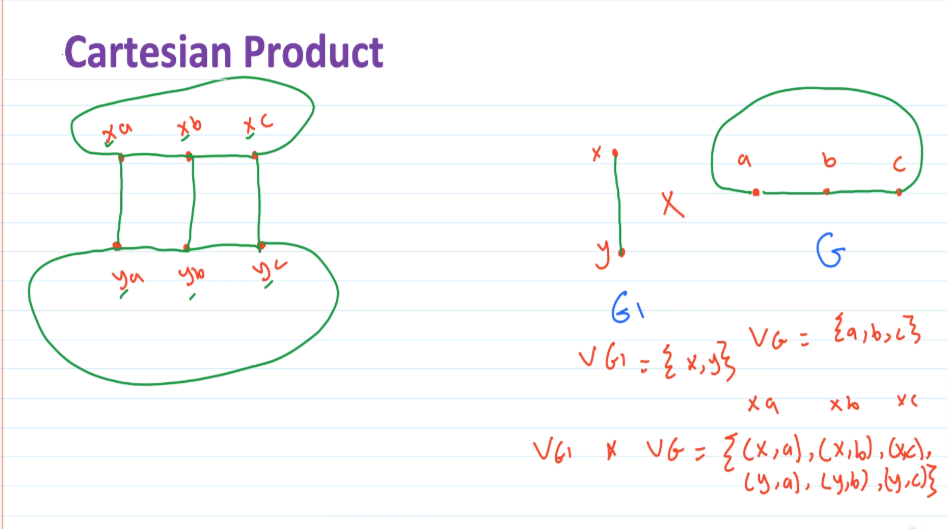 Cartesian Product
xa xb xc
ya yb yc
x
y
X
a b c
G1
G
VG1 = { x,y}
VG = {a,b,c}
xa xb xc
VG1 x VG = {(x,a), (x,b), (x,c),
(y,a), (y,b), (y,c)}